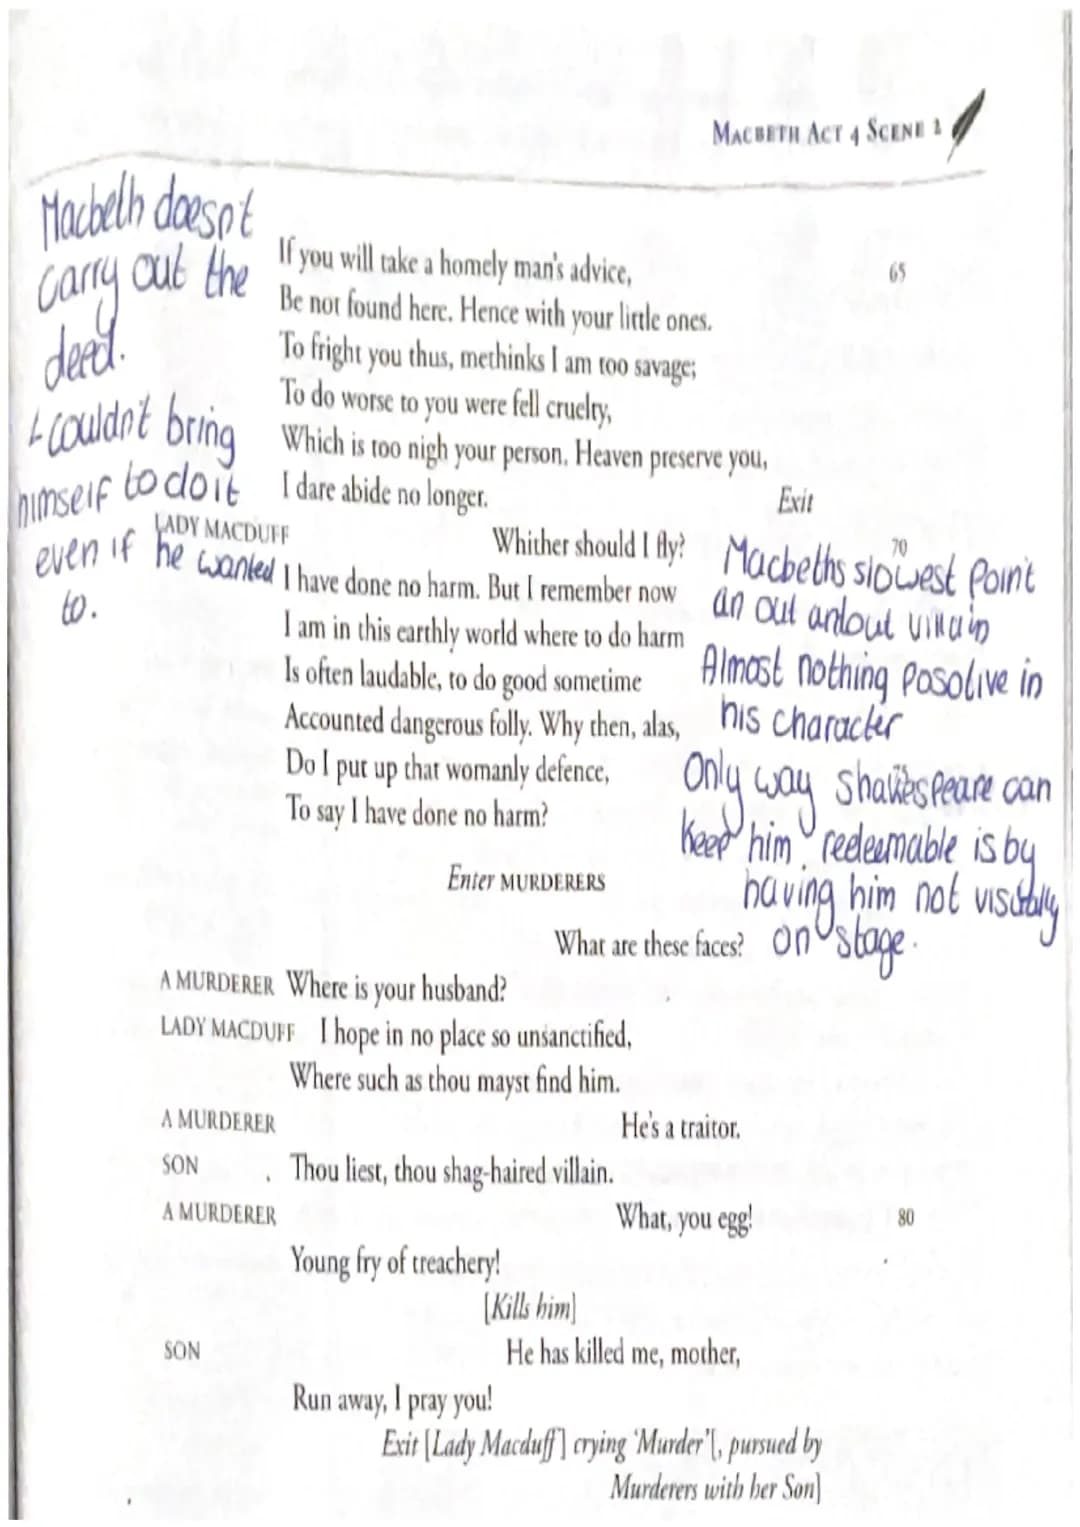 MACBETH ACT 4 SCENE 2
Macbeth doesnt
carry out the
deed.
↳ couldn't bring
himself to do it
even if he wanted
to.
If you will take a homely man's advice, 65
Be not found here. Hence with your little ones.
To fright you thus, methinks I am too savage;
To do worse to you were fell cruelty,
Which is too nigh your person. Heaven preserve you,
I dare abide no longer. Exit
LADY MACDUFF Whither should I fly? 70
I have done no harm. But I remember now
I am in this earthly world where to do harm
Is often laudable, to do good sometime
Accounted dangerous folly. Why then, alas,
Do I put up that womanly defence, 75
To say I have done no harm?
Macbeths slowest point
an out anlout villain
Almost nothing Posotive in
his character
Only way Shakespeare can
Keep him redeemable is by
having him not visually
on stage.
Enter MURDERERS
What are these faces?
A MURDERER Where is your husband?
LADY MACDUFF I hope in no place so unsanctified,
Where such as thou mayst find him.
A MURDERER He's a traitor.
SON Thou liest, thou shag-haired villain.
A MURDERER What, you egg! 80
Young fry of treachery!
[Kills him]
SON He has killed me, mother,
Run away, I pray you!
Exit [Lady Macduff] crying 'Murder'[, pursued by
Murderers with her Son]